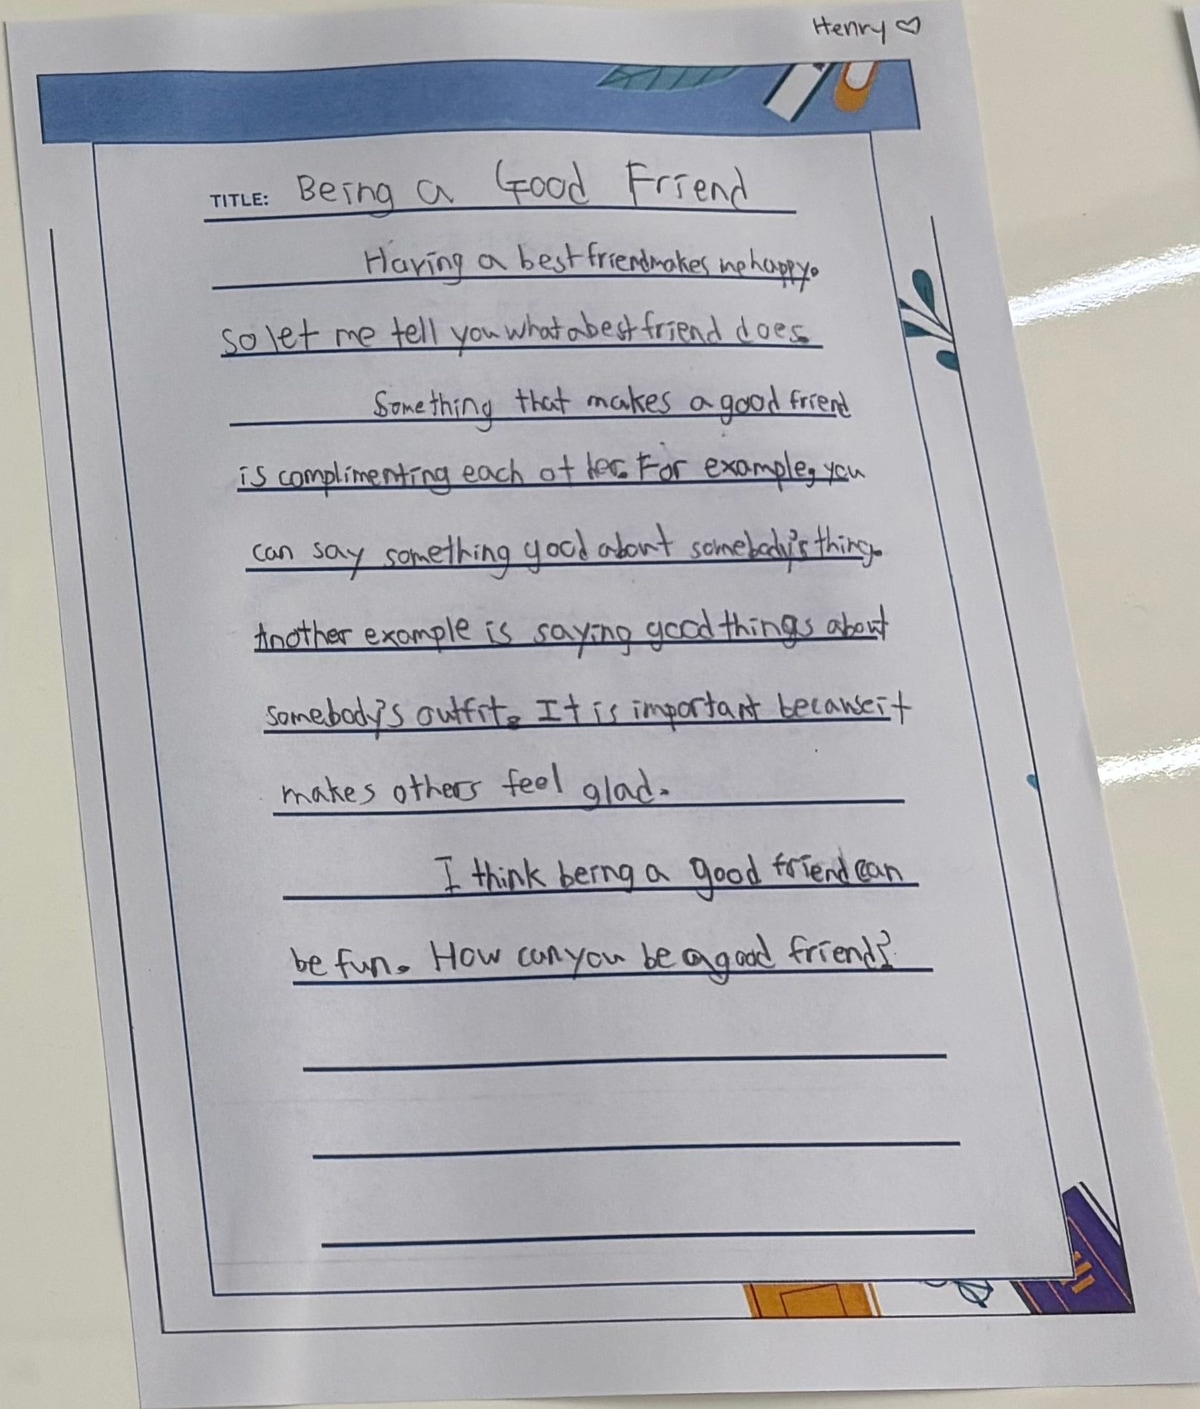 Henry ♡
TITLE: Being a Good Friend
Having a best friend makes me happy.
so let me tell you what a best friend does.
Something that makes a good friend
is complimenting each other. For example, you
can say something good about somebody's thing.
Another example is saying good things about
somebody's outfit. It is important because it
makes others feel glad.
I think being a good friend can
be fun. How can you be a good friend?